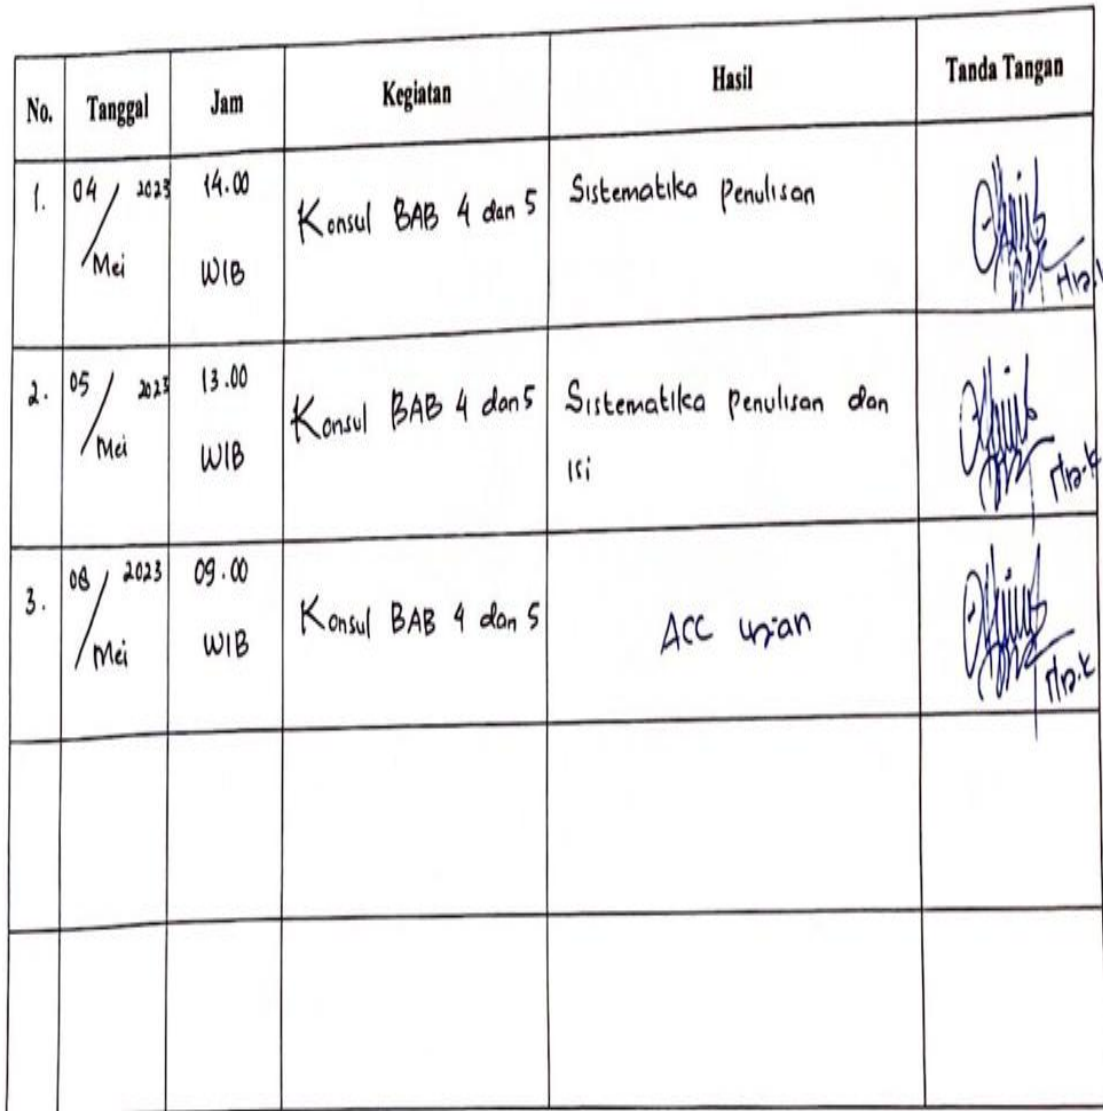 No. Tanggal Jam Kegiatan Hasil Tanda Tangan
1. 04 / Mei 2023 14.00 WIB Konsul BAB 4 dan 5 Sistematika Penulisan
2. 05 / Mei 2023 13.00 WIB Konsul BAB 4 dan 5 Sistematika Penulisan dan
isi
3. 08 / Mei 2023 09.00 WIB Konsul BAB 4 dan 5 ACC ujian